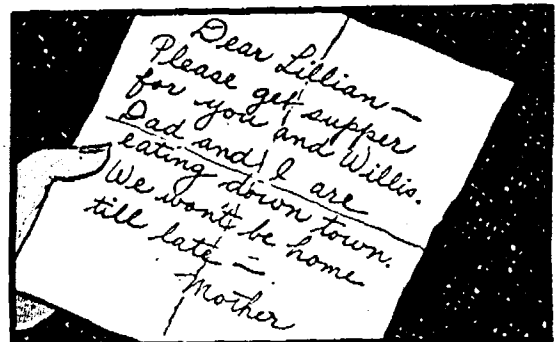 Dear Lillian —
Please get supper
for you and Willis.
Dad and I are
eating down town.
We won't be home
till late —
Mother